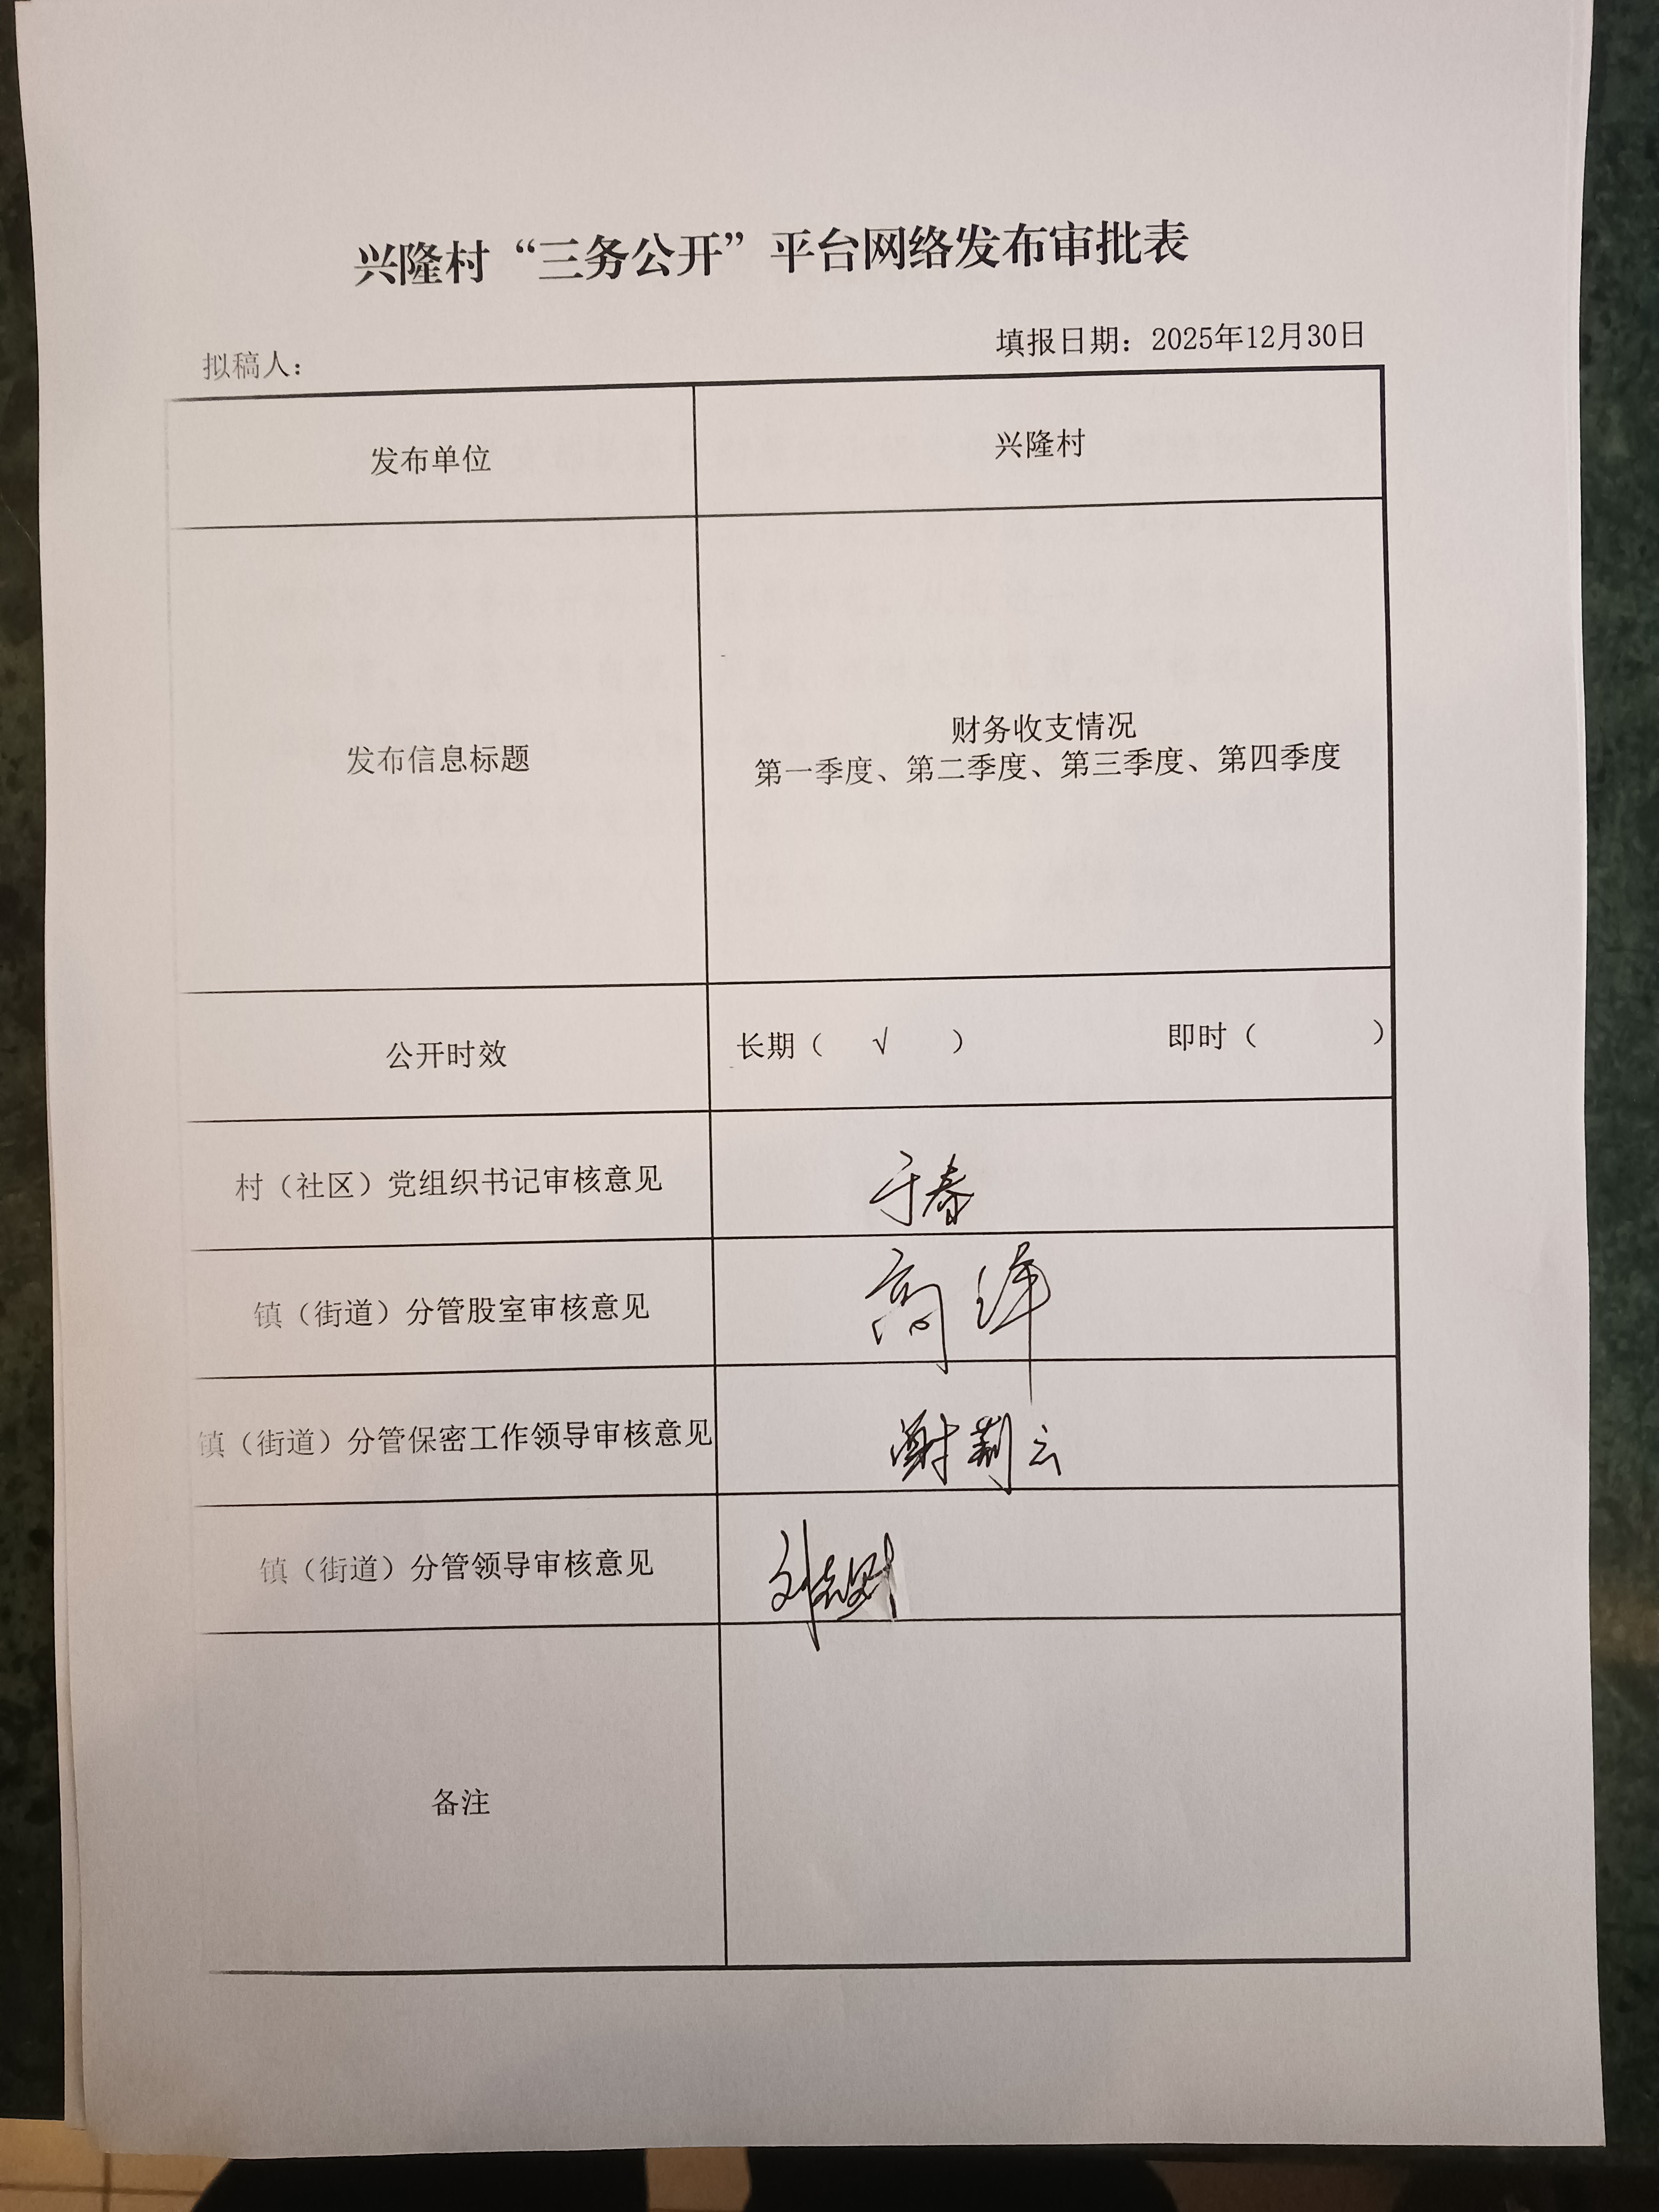 兴隆村“三务公开”平台网络发布审批表
拟稿人：
填报日期：2025年12月30日
发布单位
兴隆村
发布信息标题
财务收支情况
第一季度、第二季度、第三季度、第四季度
公开时效
长期（ √ ） 即时（ ）
村（社区）党组织书记审核意见
于春
镇（街道）分管股室审核意见
高洋
镇（街道）分管保密工作领导审核意见
谢荆云
镇（街道）分管领导审核意见
备注